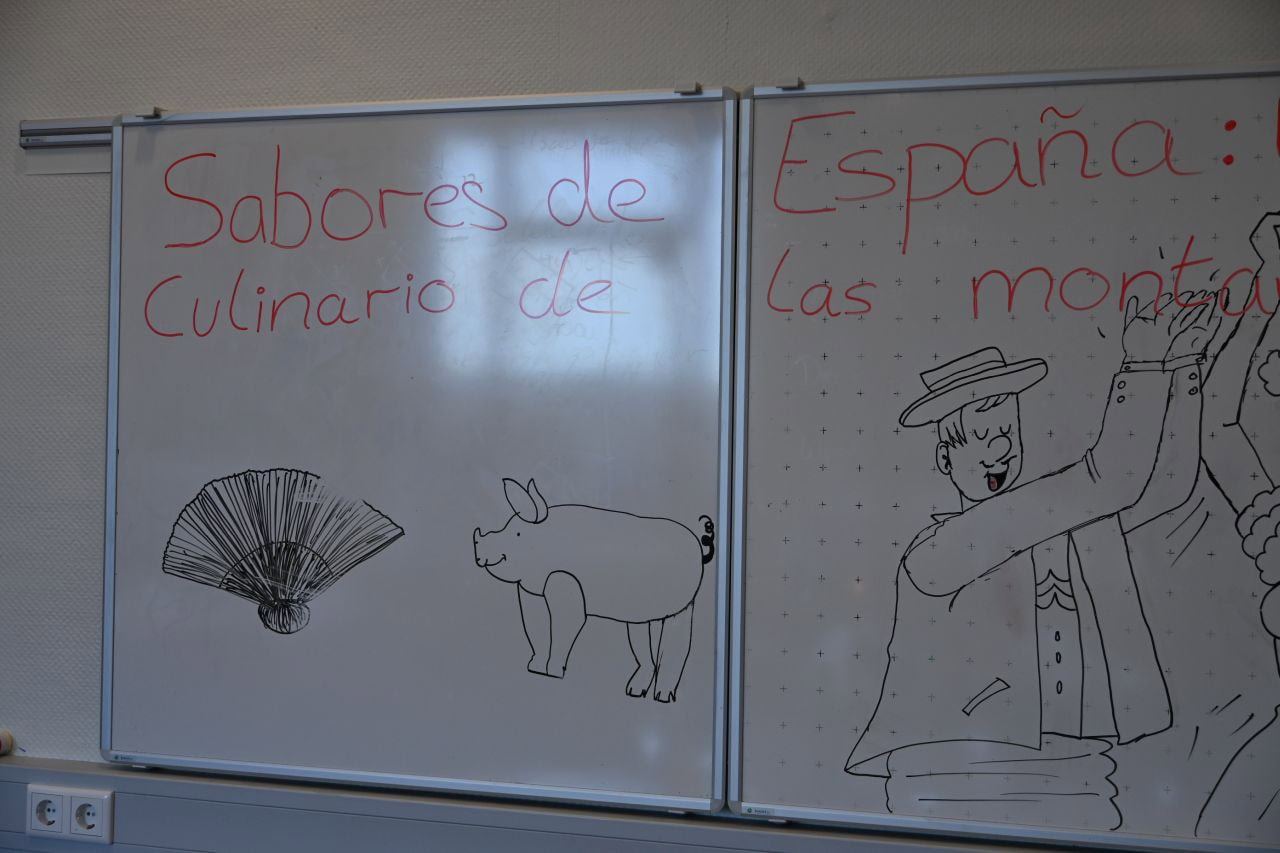 Sabores de España:
Culinario de las